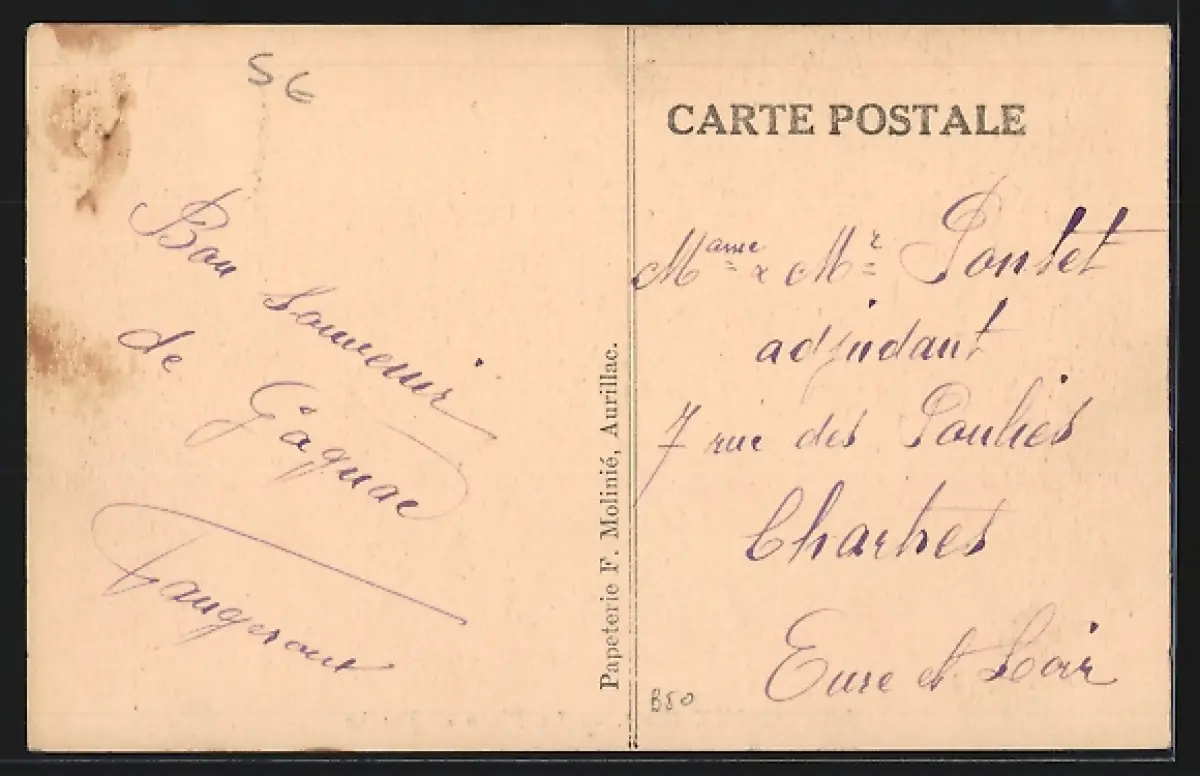 56
Bon Souvenir
de Gagnac
Faugeroux
Papeterie F. Molinié, Aurillac.
CARTE POSTALE
Mame & Mr Pontet
adjudant
7 rue des Poulies
Chartres
Eure et Loir
B50